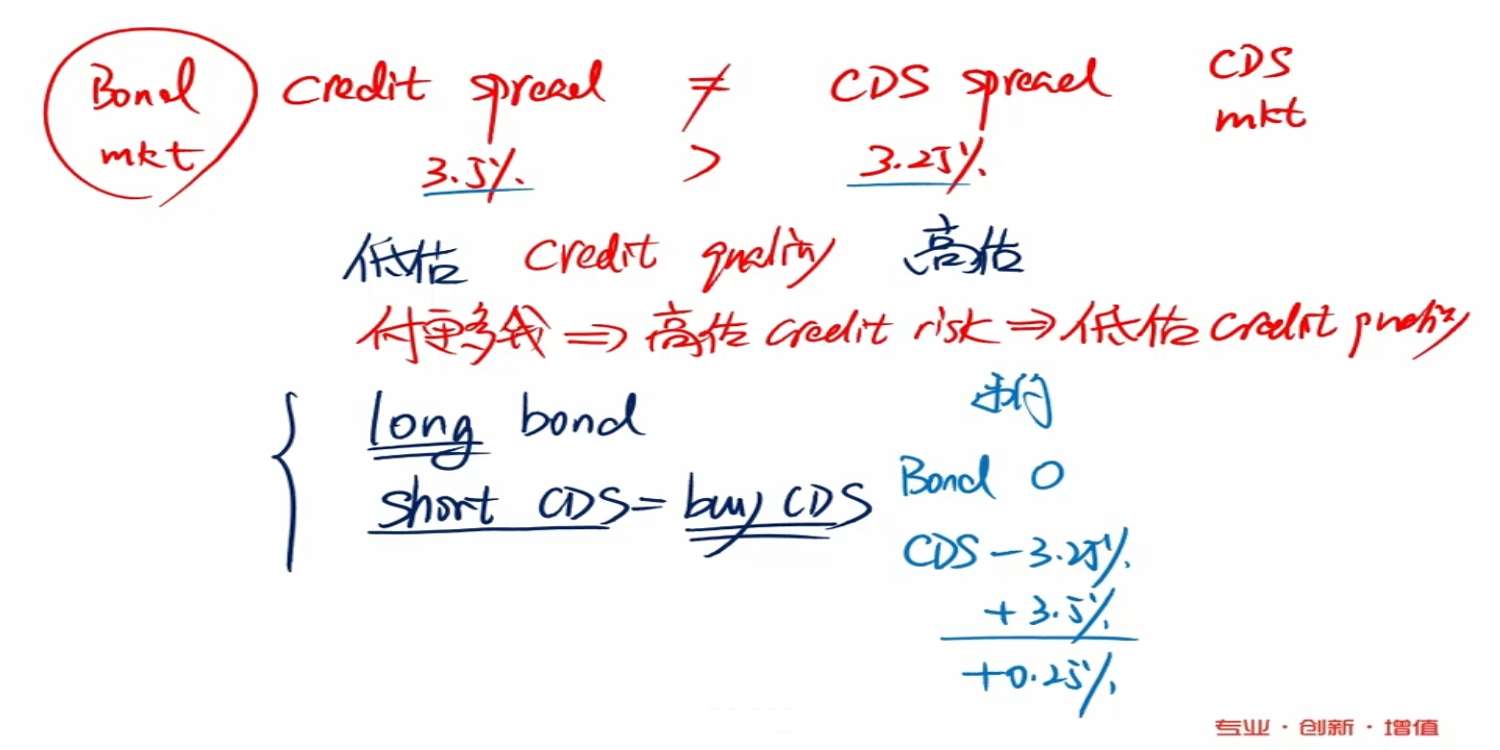 Bond credit spread ≠ CDS spread CDS
mkt 3.5% > 3.25% mkt
低估 credit quality 高估
付更多钱 ⇒ 高估 credit risk ⇒ 低估 credit quality
long bond
short CDS = buy CDS
违约
Bond 0
CDS -3.25%
+3.5%
+0.25%
专业·创新·增值